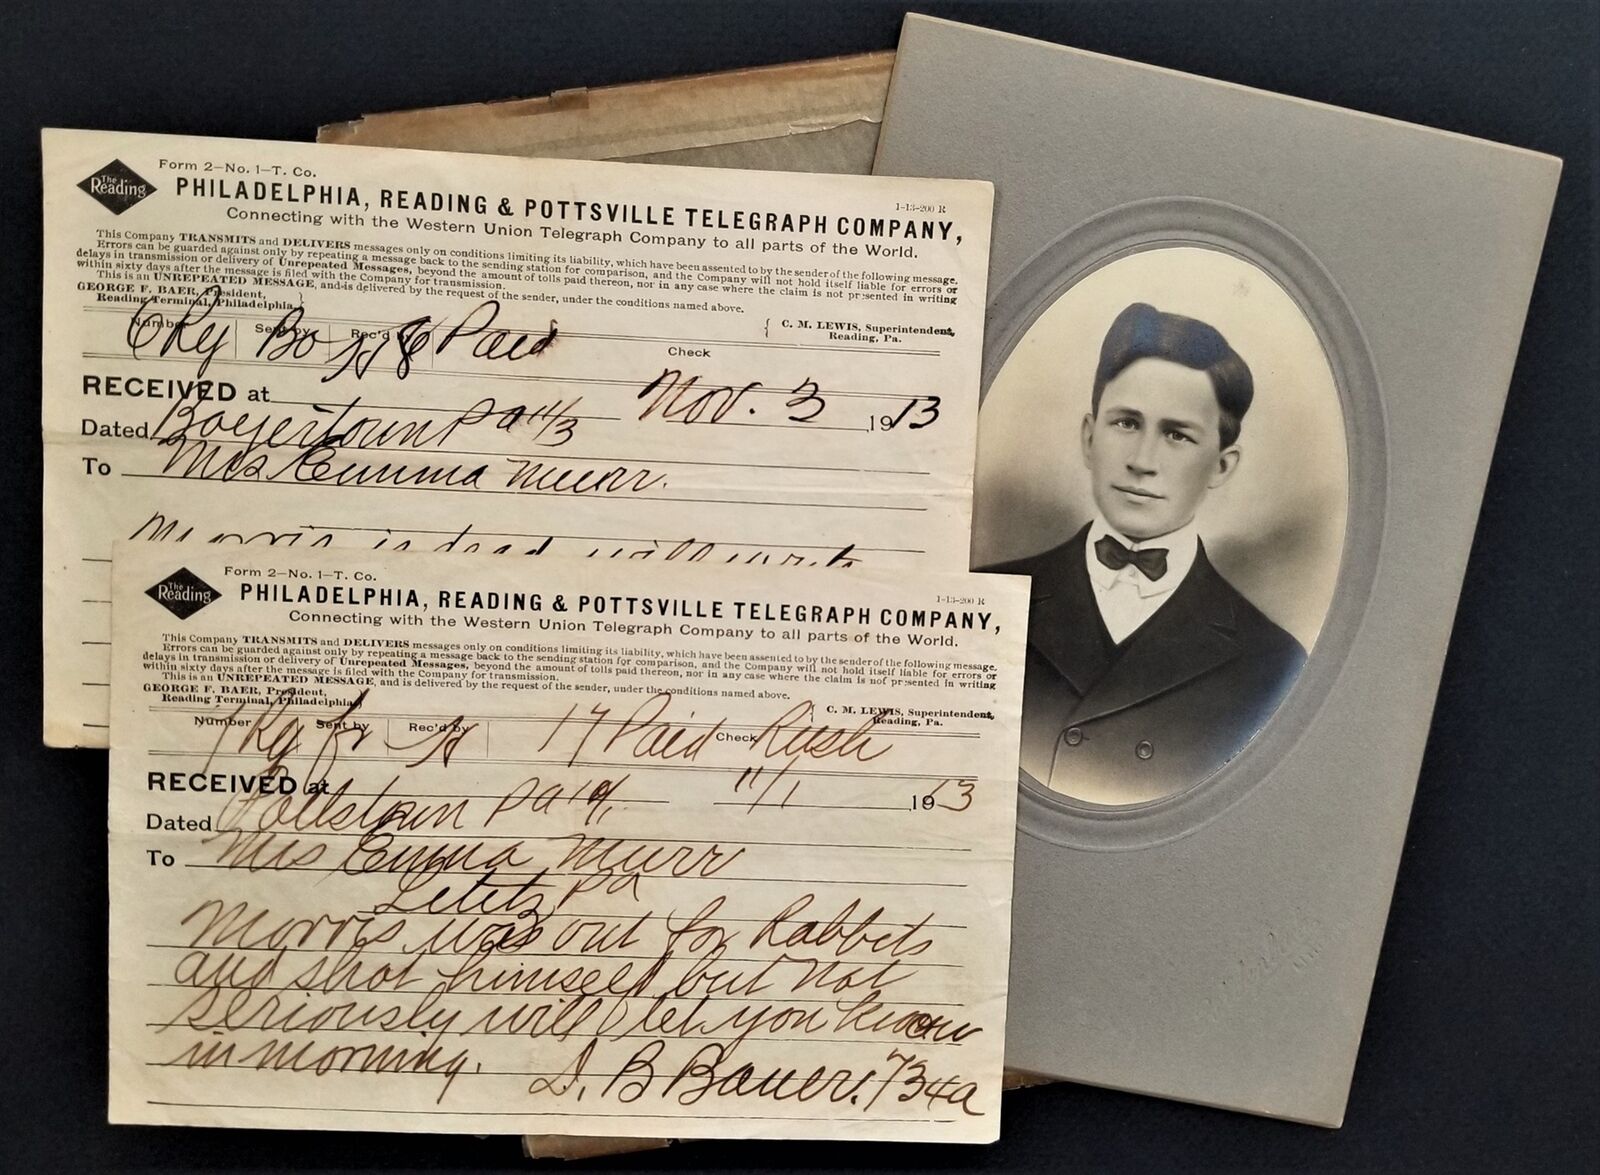 The Reading
Form 2—No. 1—T. Co.
1-13-200 R
PHILADELPHIA, READING & POTTSVILLE TELEGRAPH COMPANY,
Connecting with the Western Union Telegraph Company to all parts of the World.
This Company TRANSMITS and DELIVERS messages only on conditions limiting its liability, which have been assented to by the sender of the following message.
Errors can be guarded against only by repeating a message back to the sending station for comparison, and the Company will not hold itself liable for errors or
delays in transmission or delivery of Unrepeated Messages, beyond the amount of tolls paid thereon, nor in any case where the claim is not presented in writing
within sixty days after the message is filed with the Company for transmission.
This is an UNREPEATED MESSAGE, and is delivered by the request of the sender, under the conditions named above.
GEORGE F. BAER, President,
Reading Terminal, Philadelphia.
C. M. LEWIS, Superintendent,
Reading, Pa.
Number Sent by Rec'd by Check
Bo 8 Paid
RECEIVED at Nov. 3 1913
Dated Boyertown Pa 11/3
To Mrs Emma Murr.
Morris is dead will write
The Reading
Form 2—No. 1—T. Co.
1-13-200 R
PHILADELPHIA, READING & POTTSVILLE TELEGRAPH COMPANY,
Connecting with the Western Union Telegraph Company to all parts of the World.
This Company TRANSMITS and DELIVERS messages only on conditions limiting its liability, which have been assented to by the sender of the following message.
Errors can be guarded against only by repeating a message back to the sending station for comparison, and the Company will not hold itself liable for errors or
delays in transmission or delivery of Unrepeated Messages, beyond the amount of tolls paid thereon, nor in any case where the claim is not presented in writing
within sixty days after the message is filed with the Company for transmission.
This is an UNREPEATED MESSAGE, and is delivered by the request of the sender, under the conditions named above.
GEORGE F. BAER, President,
Reading Terminal, Philadelphia
C. M. LEWIS, Superintendent,
Reading, Pa.
Number Sent by Rec'd by Check
17 Paid Rush
RECEIVED at 11/1 1913
Dated Pottstown Pa
To Mrs Emma Murr
Letitz Pa
Morris was out for Rabbits
and shot himself but not
seriously will let you know
in morning.
D. B Bauer. 734a